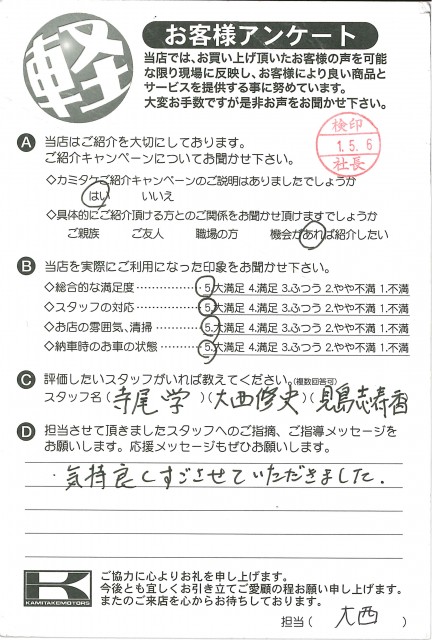 軽
お客様アンケート
当店では、お買い上げ頂いたお客様の声を可能
な限り現場に反映し、お客様により良い商品と
サービスを提供する事に努めています。
大変お手数ですが是非お声をお聞かせ下さい。
検印
1.5.6
社長
A 当店はご紹介を大切にしております。
ご紹介キャンペーンについてお聞かせ下さい。
◇カミタケご紹介キャンペーンのご説明はありましたでしょうか
はい いいえ
◇具体的にご紹介頂ける方とのご関係をお聞かせ頂けますでしょうか
ご親族 ご友人 職場の方 機会があれば紹介したい
B 当店を実際にご利用になった印象をお聞かせ下さい。
◇総合的な満足度 ………… 5.大満足 4.満足 3.ふつう 2.やや不満 1.不満
◇スタッフの対応 ………… 5.大満足 4.満足 3.ふつう 2.やや不満 1.不満
◇お店の雰囲気、清掃 ……… 5.大満足 4.満足 3.ふつう 2.やや不満 1.不満
◇納車時のお車の状態 ……… 5.大満足 4.満足 3.ふつう 2.やや不満 1.不満
C 評価したいスタッフがいれば教えてください。(複数回答可)
スタッフ名 ( 寺尾 学 ) ( 大西修史 ) ( 児島志寿香
D 担当させて頂きましたスタッフへのご指摘、ご指導メッセージを
お願いします。応援メッセージもぜひお願いします。
・気持良くすごさせていただきました.
K
KAMITAKEMOTORS
ご協力に心よりお礼を申し上げます。
今後とも宜しくお引き立てご愛顧の程お願い申し上げます。
またのご来店を心からお待ちしております。
担当 ( 大西 )